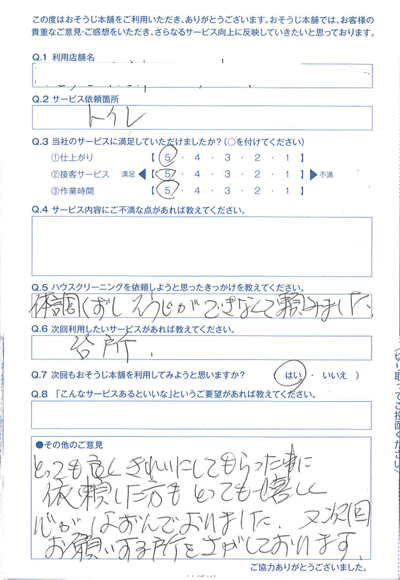 この度はおそうじ本舗をご利用いただき、ありがとうございます。おそうじ本舗では、お客様の
貴重なご意見・ご感想をいただき、さらなるサービス向上に反映していきたいと思っております。
Q.1 利用店舗名
Q.2 サービス依頼箇所
トイレ
Q.3 当社のサービスに満足していただけましたか?(○を付けてください)
①仕上がり 【 5 ・ 4 ・ 3 ・ 2 ・ 1 】
②接客サービス 満足 ◀【 5 ・ 4 ・ 3 ・ 2 ・ 1 】▶ 不満
③作業時間 【 5 ・ 4 ・ 3 ・ 2 ・ 1 】
Q.4 サービス内容にご不満な点があれば教えてください。
Q.5 ハウスクリーニングを依頼しようと思ったきっかけを教えてください。
体調くずしそうじができなくて頼みました
Q.6 次回利用したいサービスがあれば教えてください。
台所.
Q.7 次回もおそうじ本舗を利用してみようと思いますか? はい ・ いいえ 】
Q.8 「こんなサービスあるといいな」というご要望があれば教えてください。
●その他のご意見
とっても良くきれいにしてもらった事に
依頼した方もとっても嬉しく
心がなおんでおりました。又次回
お願いする所をさがしております
ご協力ありがとうございました。
切り取ってご投函ください